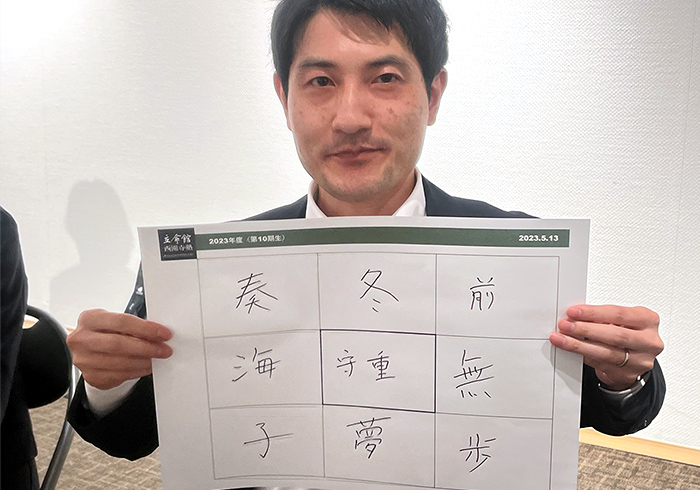 立命館
西園寺塾
2023年度（第10期生）
2023.5.13
奏 冬 前
海 守重 無
子 夢 歩